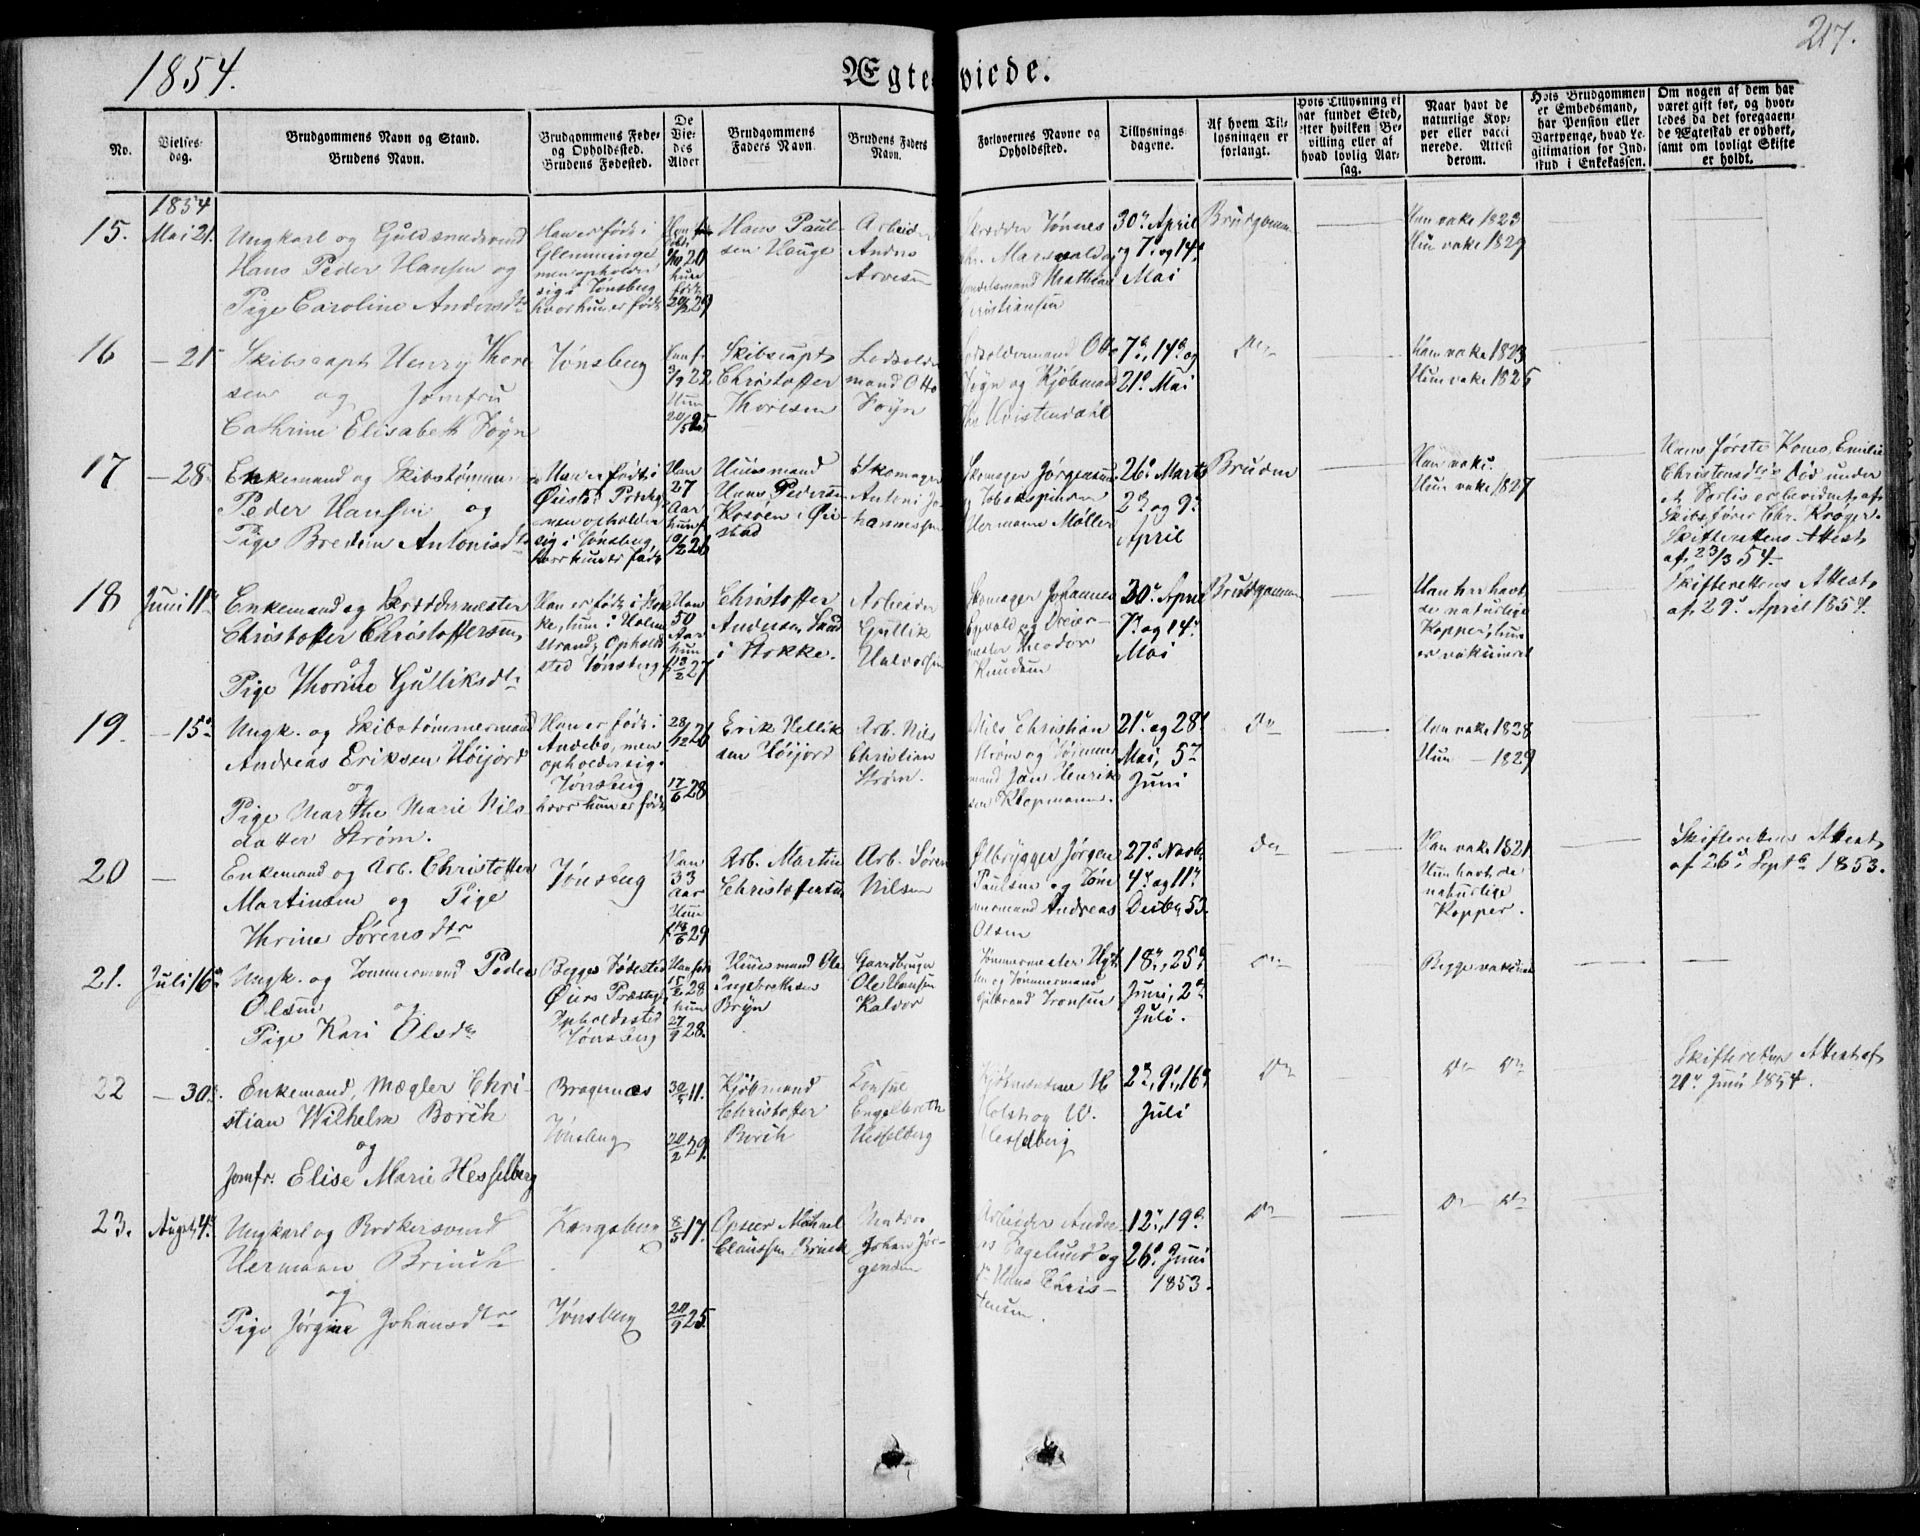 1854.
Ægteviede.
217.
No.
Vielses-
dag.
Brudgommens Navn og Stand.
Brudens Navn.
Brudgommens Føde-
og Opholdssted.
Brudens Fødested.
De
Vie-
des
Alder
Brudgommens
Faders Navn.
Brudens Faders
Navn.
Forlovernes Navne og
Opholdssted.
Tillysnings-
dagene.
Af hvem Til-
lysningen er
forlangt.
Hvis Tillysning ei
har fundet Sted,
efter hvilken Be-
villing eller af
hvad lovlig Aar-
sag.
Naar havt de
naturlige Kop-
per eller vacci
nerede. Attest
derom.
Hvis Brudgommen
er Embedsmand,
har Pension eller
Vartpenge, hvad Le-
gitimation for Ind-
skud i Enkekassen.
Om nogen af dem har
været gift før, og hvor-
ledes da det foregaaen-
de Ægteskab er ophørt,
samt om lovligt Skifte
er holdt.
1854
15.
Mai 21.
Ungkarl og Guldsmedsvend
Hans Peder Hansen og
Pige Caroline Andersdtr
Han er født i
Glemminge
men opholder
sig i Tønsberg
hvor hun er født
20
hun
født
29
Hans Paul-
sen Hauge
Arbeider
Anders
Arvesen
Skrædder Tønnes
Mathias
Christiansen
30te April
og 7de og 14de
Mai
Brudgommen
Han vake 1823
Hun vake 1829
16
— 21
Skibscapt Henry Thore
sen og Jomfru
Cathrine Elisabeth Føyn
Tønsberg
Han f.
3/9 22
Hun
20/5 25
Skibscapt
Christoffer
Thoresen
Lodsolder
mand Otto
Føyn
Lodsoldermand Otto
Føyn og Kjøbmand
7de, 14de og
21de Mai
Do
Han vake 1823
Hun vake 1826
17
— 28
Enkemand og Skibstømmerm
Peder Hansen og
Pige Bredine Antonisdtr
Han er født i
Øiestad Præstegj
men opholder
sig i Tønsberg
hvor hun er født
Han
27
Aar
hun f.
26
Huusmand
Hans Pedersen
Kosøen i Øie
stad
Skomager
Antoni Jo
hannessen
Skomager Jørgensen
og Tobakspinder
Hermann Møller
26de Marts
2den og 9de
April
Bruden
Han vake.
Hun vake 1827
Hans første Kone, Emilie
Christensdtrs Død under
et Forlis er bevidnet af
Skibsfører Chr. Krøger.
Skifterettens Attest
af 23/3 54.
18
Juni 11te
Enkemand og Skræddermester
Christoffer Christoffersen,
og
Pige Thorine Gulliksdtr
Han er født i Stok
ke, hun i Holm
strand, Opholds
sted Tønsberg
Han
50
Aar
hun
f 13/2 27
Christoffer
Andersen Sand
i Stokke.
Arbeider
Gullik
Halvorsen
Skomager Johannes
Egvald og Dreier-
mester Theodor
Knudsen
30te April
7de og 14de
Mai
Brudgommen
Han har havt
de naturlige
Kopper, hun
er vakcineret
Skifterettens Attest
af 29de April 1854.
19
— 15de
Ungk. og Skibstømmermand
Andreas Eriksen Høijord
og
Pige Marthe Marie Nils
datter Strøm.
Han er født i
Andebo, men
opholder sig i
Tønsberg
hvor hun er født
28/12 26
17/6 28
Erik Hellik
sen Høijord
Arb. Nils
Christian
Strøm.
Nils Christian
Strøm og Tømmer
mand Jan Henrik
sen Klopmann.
21de og 28de
Mai, 5te
Juni
Do
Han vake 1828
Hun — 1829
20
—
Enkemand og Arb. Christoffer
Martinsen og Pige
Thrine Sørensdtr
Tønsberg
Han
33
Aar
Hun
f 18/6 29
Arb. Martin
Christoffersen
Arb. Søren
Nilsen
Ølbrygger Jørgen
Paulsen og Tøm
mermand Andreas
Olsen
27de Novbr
4de og 11te
Decbr 53.
Do
Han vake 1821
Hun havt de
naturlige
Kopper.
Skifterettens Attest
af 26de Septbr 1853.
21.
Juli 16de
Ungk. og Tømmermand Peder
Olsen og
Pige Kari Olsdtr
Begges Fødested
Øiers Præstegj
Opholdssted
Tønsberg
Han født
15/2 28
hun
27/9 28.
Huusmand Ole
Ingebrethsen
Bryn
Gaardbruger
Ole Hansen
Kalvor
Tømmermester
sen og Tømmermand
Gulbrand Tronsen
18de, 25de
Juni, 2den
Juli.
Do
Begge vakcin
22
— 30te
Enkemand, Mægler Chri
stian Wilhelm Borch
og
Jomfr. Elise Marie Hesselberg
Bragernæs
Tønsberg
11.
20/2 29.
Kjøbmand
Christoffer
Borch
Consul
Engelbreth
Hesselberg
Kjøbmændene H
Holst og W.
Hesselberg
2den, 9de, 16de
Juli
Do
Do Do
Skifterettens Attest af
21de Juni 1854.
23.
August 4de
Ungkarl og Bødkersvend
Hermann Brinch
og
Pige Jørgine Johansdtr
Kongsberg
Tønsberg
8/5 17.
20/9 25.
Opseer Michael
Claussen Brinck
Matros
Johan Jør-
gensen
Arbeider Andre-
as Fagelund og
do Hans Chris-
tensen.
12te, 19de
26de Juni
1853.
Do
Do Do